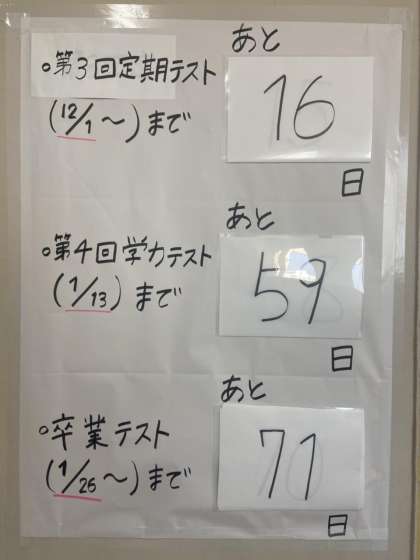 あと
○第3回定期テスト
(12/1～)まで
16
日
あと
○第4回学力テスト
(1/13)まで
59
日
あと
○卒業テスト
(1/26～)まで
71
日